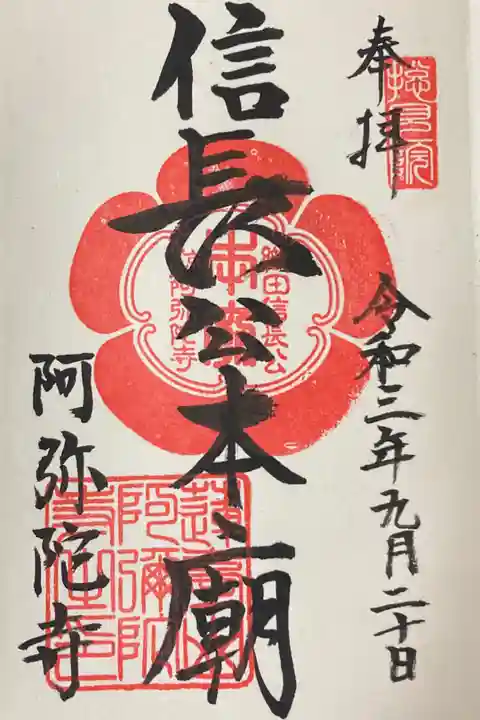 奉拝
總見院
令和三年九月二十日
信長公本廟
織田信長公
本廟
阿弥陀寺
阿弥陀寺